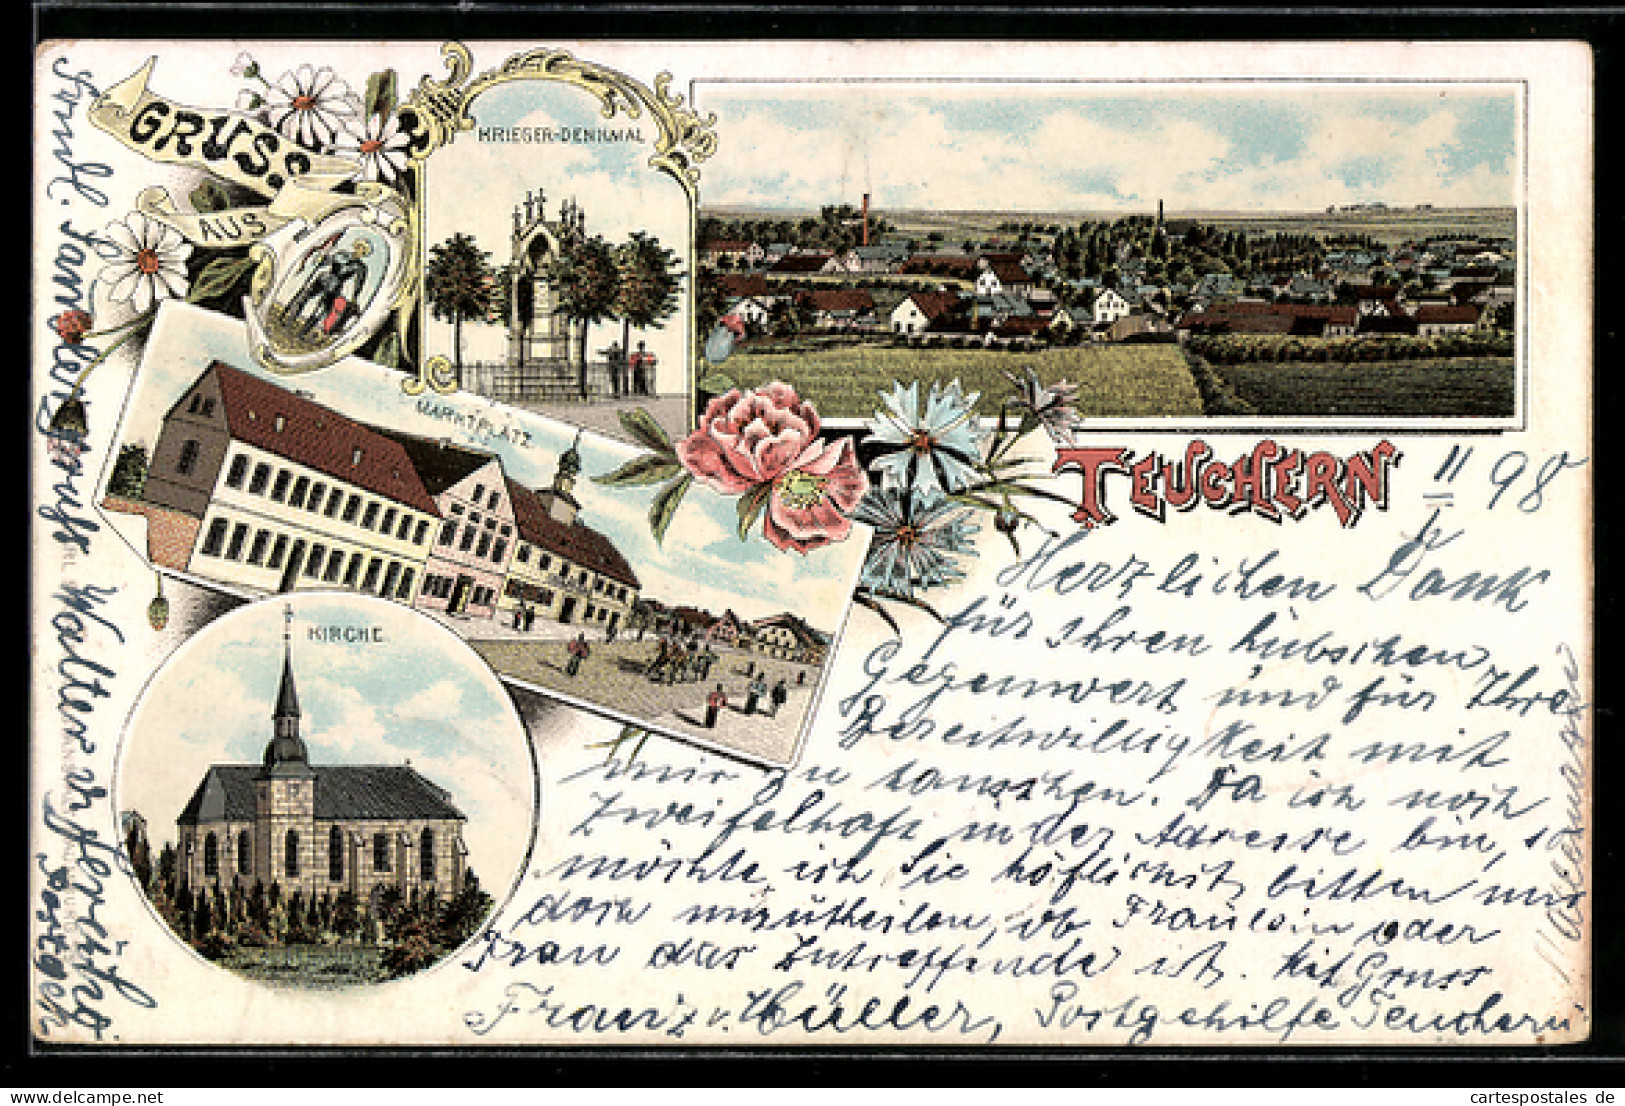 GRUSS
AUS
KRIEGER-DENKMAL
MARKTPLATZ
KIRCHE
TEUCHERN
II 98
Herzlichen Dank
für Ihren hübschen
Gegenwert und für Ihre
Bereitwilligkeit mit
mir zu tauschen. Da ich noch
Zweifelhaft in der Adresse bin, so
möchte ich Sie höflichst bitten mir
doch mitzutheilen, ob Fräulein oder
Frau das Zutreffende ist. Mit Gruss
Franz Müller, Postgehilfe Teuchern
Freundl. Sammlergruss
Walter
cartespostales de